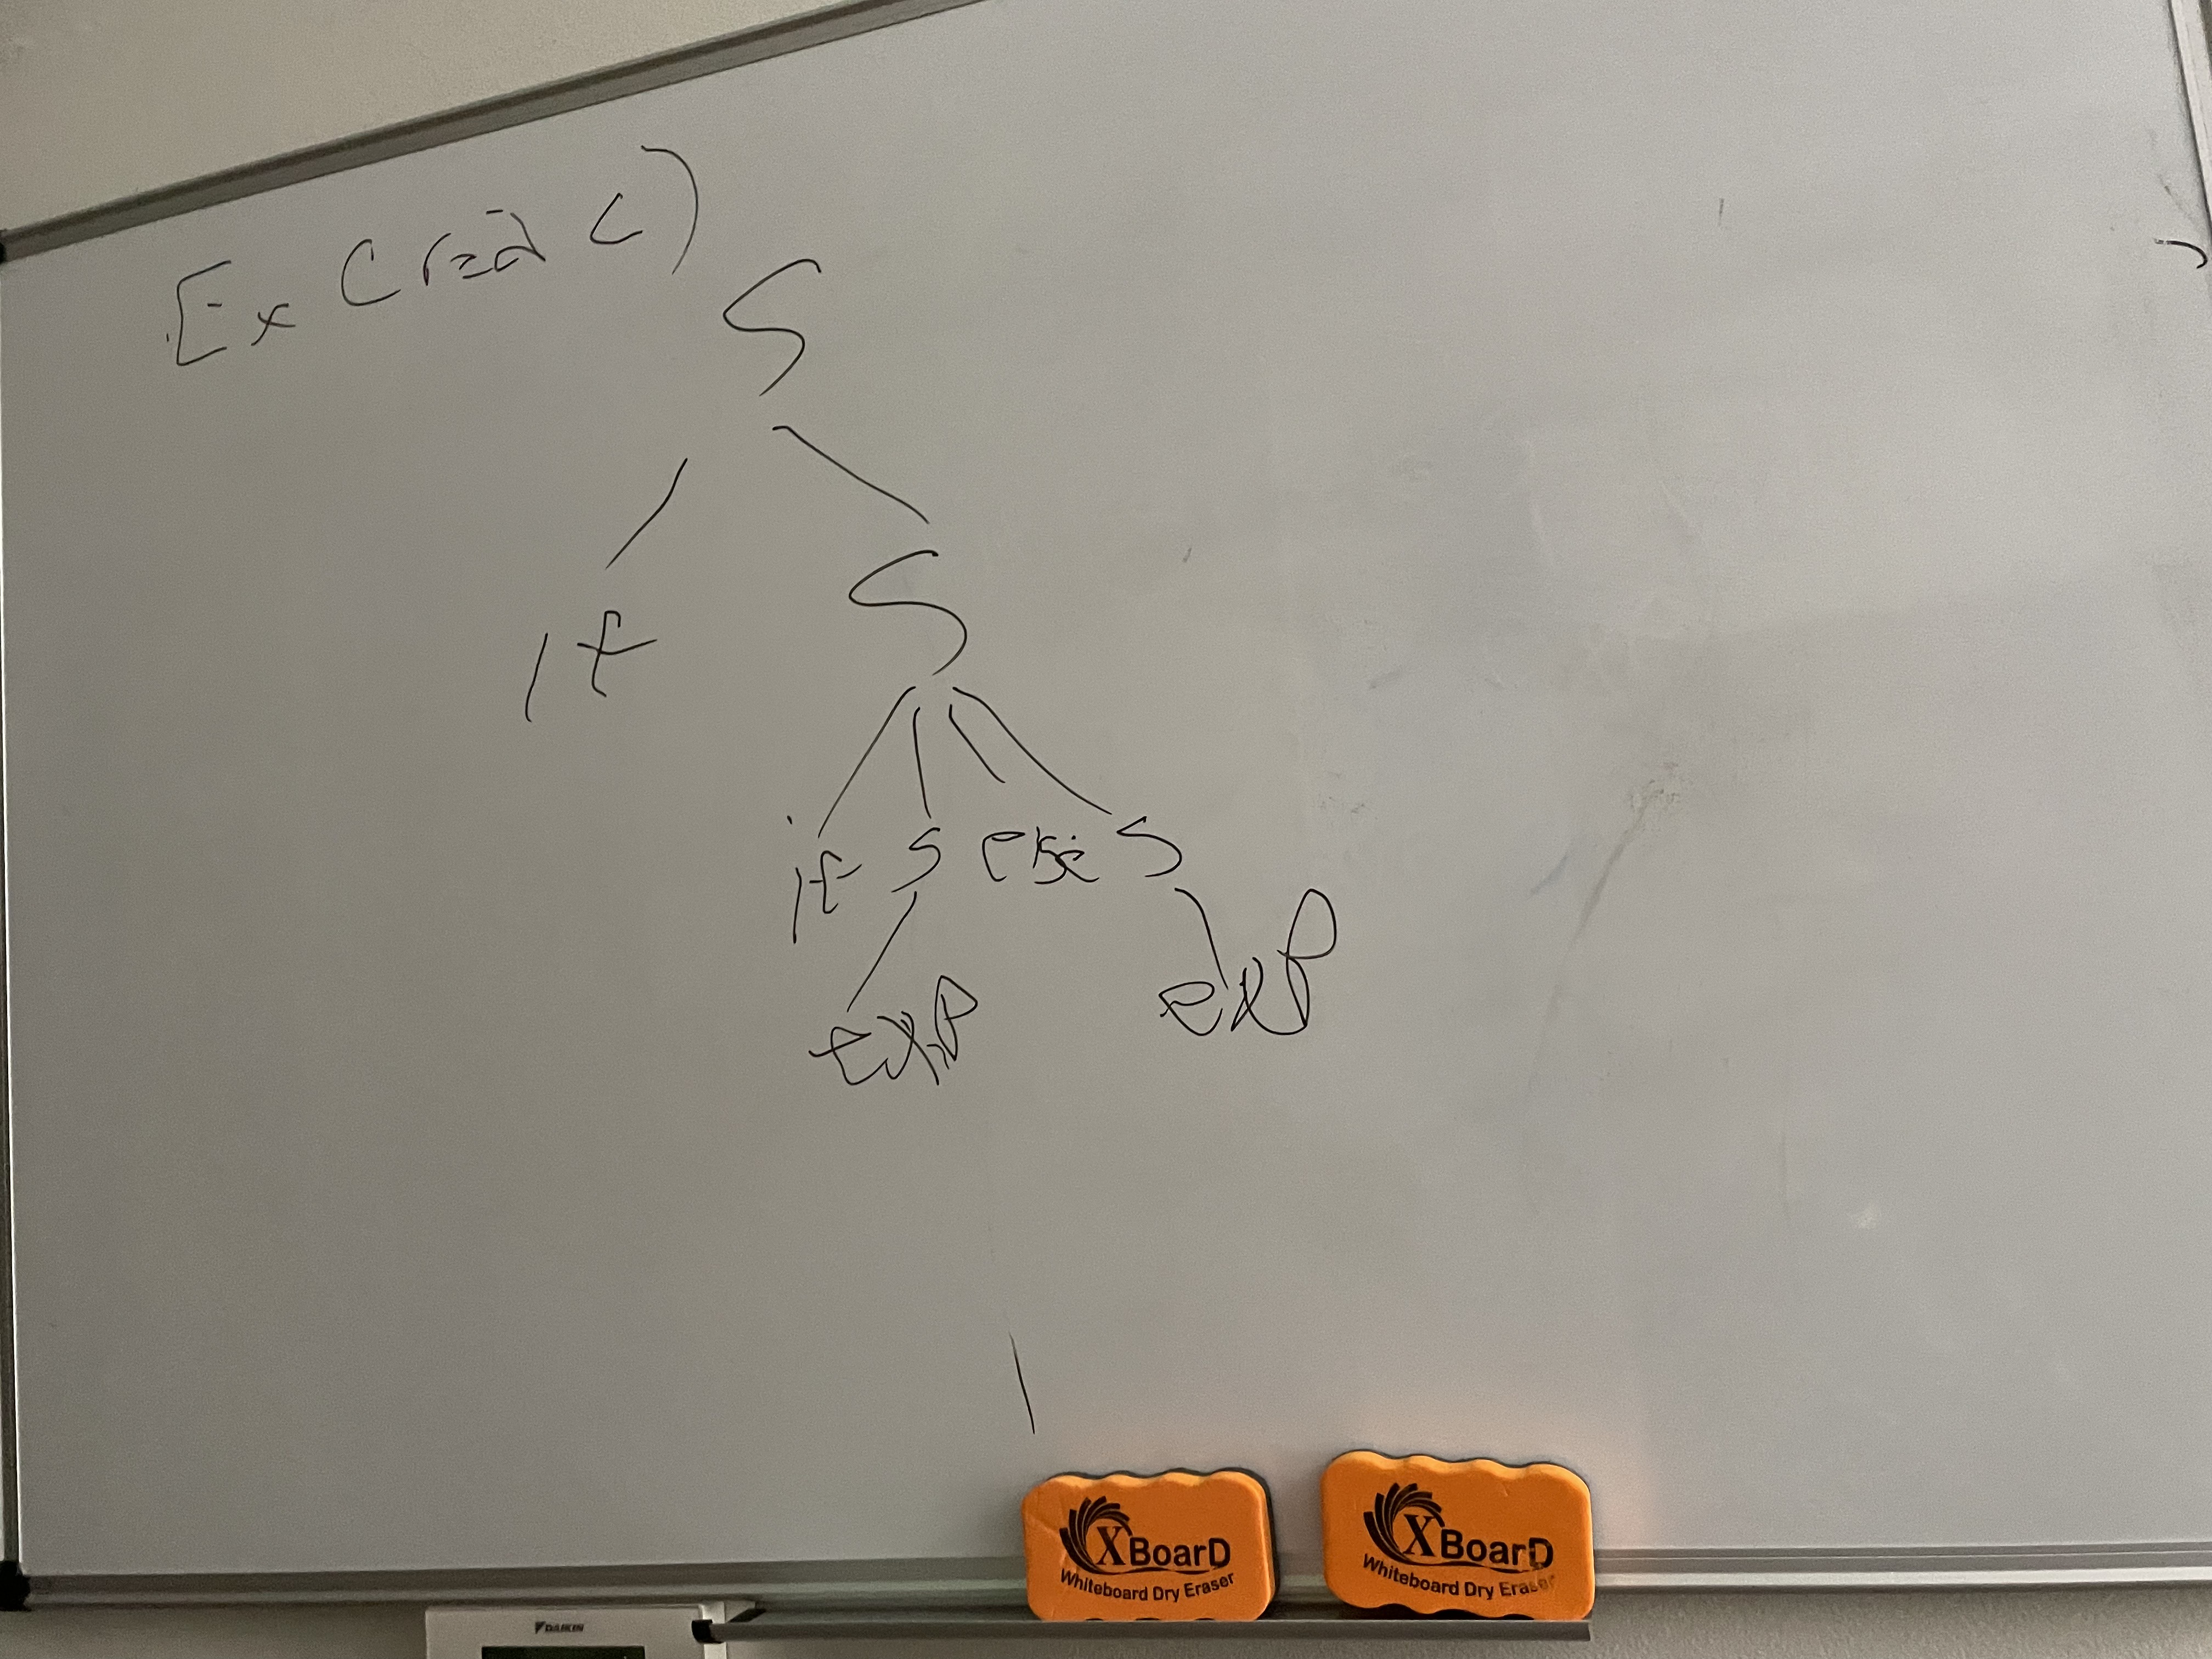 Ex Cred c)
S
if S
if S else S
exp exp
XBoarD XBoarD
Whiteboard Dry Eraser Whiteboard Dry Eraser
DAIKIN